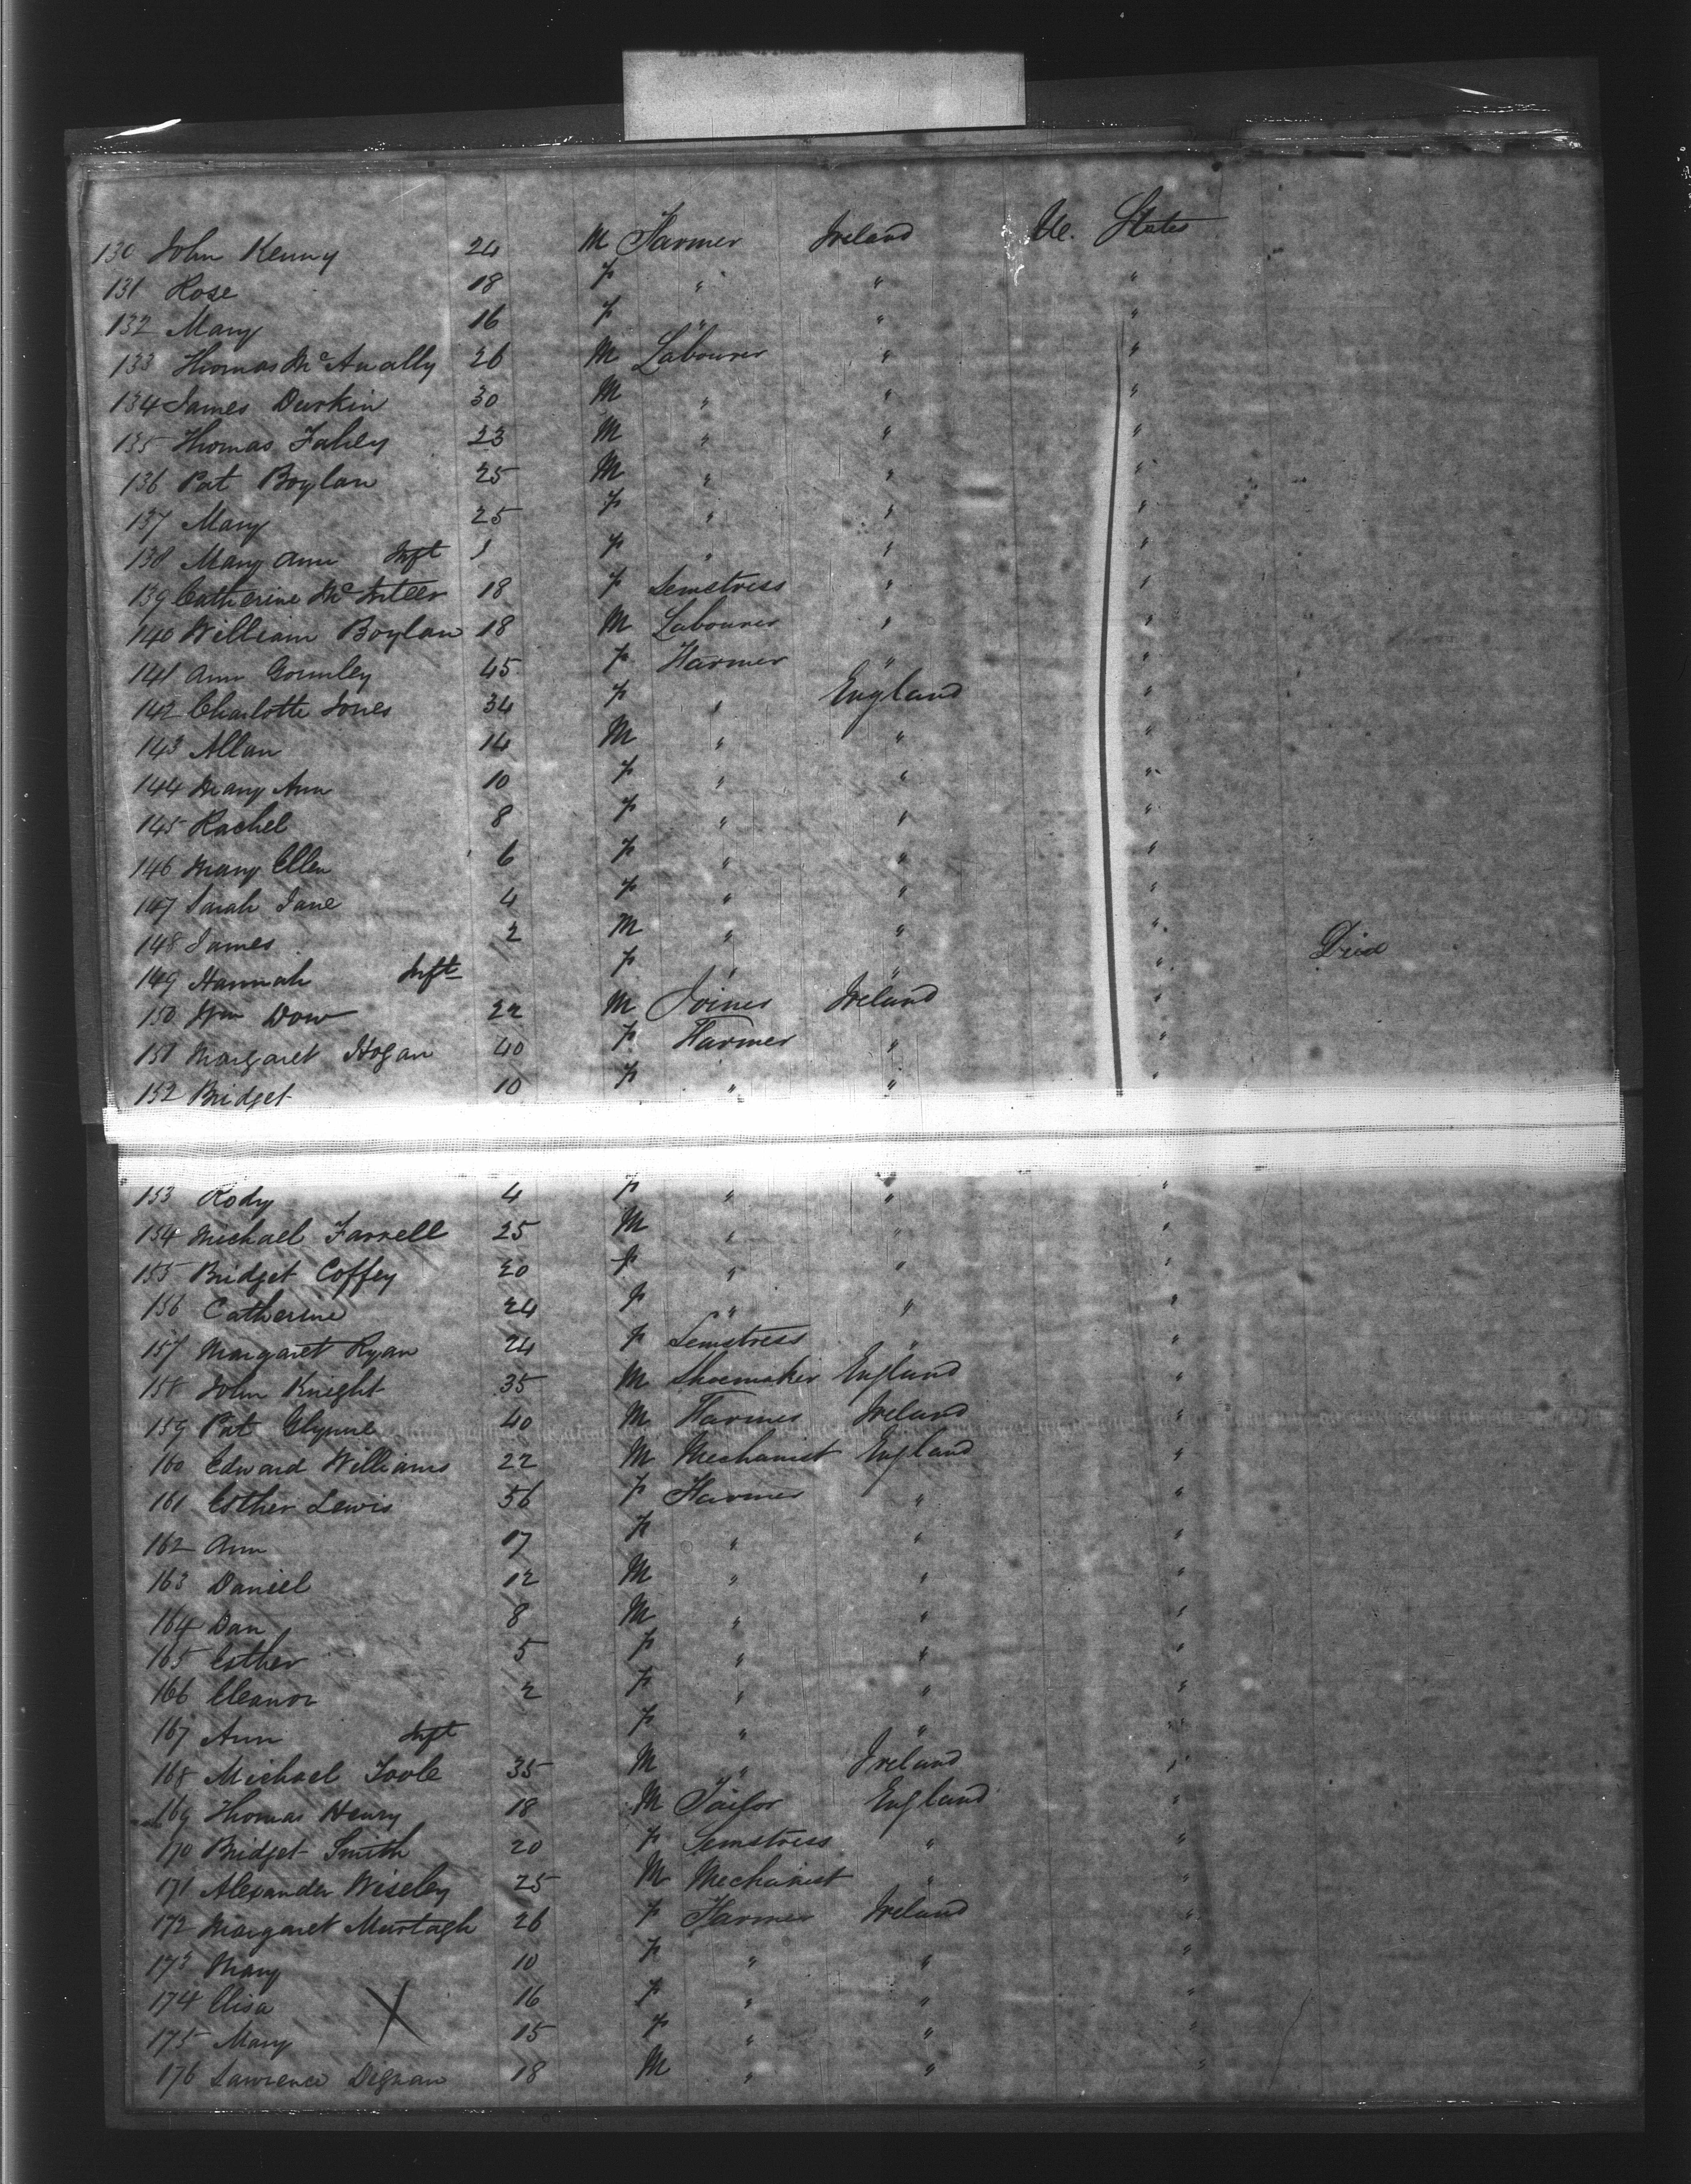 130 John Kenny 24 M Farmer Ireland U. States
131 Rose 18 F " " "
132 Mary 16 F " " "
133 Thomas McAnally 26 M Labourer " "
134 James Durkin 30 M " " "
135 Thomas Fahey 23 M " " "
136 Pat Boylan 25 M " " "
137 Mary 25 F " " "
138 Mary Ann Inft 1 F " " "
139 Catherine McInteer 18 F Semstress " "
140 William Boylan 18 M Labourer " "
141 Ann Gormley 45 F Farmer " "
142 Charlotte Jones 34 F " England "
143 Allan 14 M " " "
144 Mary Ann 10 F " " "
145 Rachel 8 F " " "
146 Mary Ellen 6 F " " "
147 Sarah Jane 4 F " " "
148 James 2 M " " "
149 Hannah Inft F " " " Died
150 Wm Dow 22 M Joiner Ireland "
151 Margaret Hogan 40 F Farmer " "
152 Bridget 10 F " " "
153 Rody 4 F " " "
154 Michael Farrell 25 M " " "
155 Bridget Coffey 20 F " " "
156 Catherine 24 F " " "
157 Margaret Ryan 24 F Semstress " "
158 John Knight 35 M Shoemaker England "
159 Pat Glynne 40 M Farmer Ireland "
160 Edward Williams 22 M Mechanist England "
161 Esther Lewis 56 F Farmer " "
162 Ann 17 F " " "
163 Daniel 12 M " " "
164 Dan 8 M " " "
165 Esther 5 F " " "
166 Eleanor 2 F " " "
167 Ann Inft F " " "
168 Michael Toole 35 M " Ireland "
169 Thomas Henry 18 M Tailor England "
170 Bridget Smith 20 F Semstress " "
171 Alexander Wiseley 25 M Mechanist " "
172 Margaret Murtagh 26 F Farmer Ireland "
173 Mary 10 F " " "
174 Elisa 16 F " " "
175 Mary 15 F " " "
176 Lawrence Dignan 18 M " " "